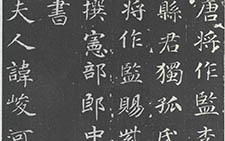 唐將作監李
縣君獨孤氏
將作監賜紫
撰憲部郎中
書
夫人諱峻河